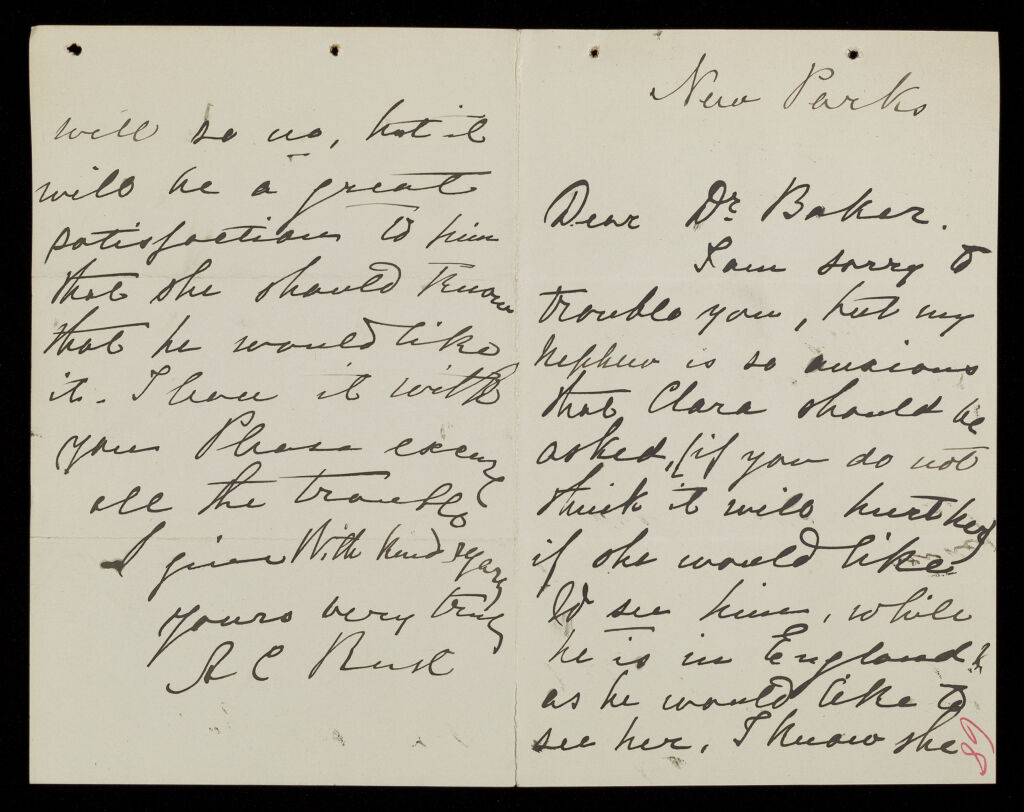 New Parks
Dear Dr Baker.
I am sorry to
trouble you, but my
nephew is so anxious
that Clara should be
asked, (if you do not
think it will hurt her)
if she would like
to see him, while
he is in England &
as he would like to
see her. I know she
68
will say no, but it
will be a great
satisfaction to him
that she should know
that he would like
it. I leave it with
you Please excuse
all the trouble
I give With kind regards
yours very truly
A C